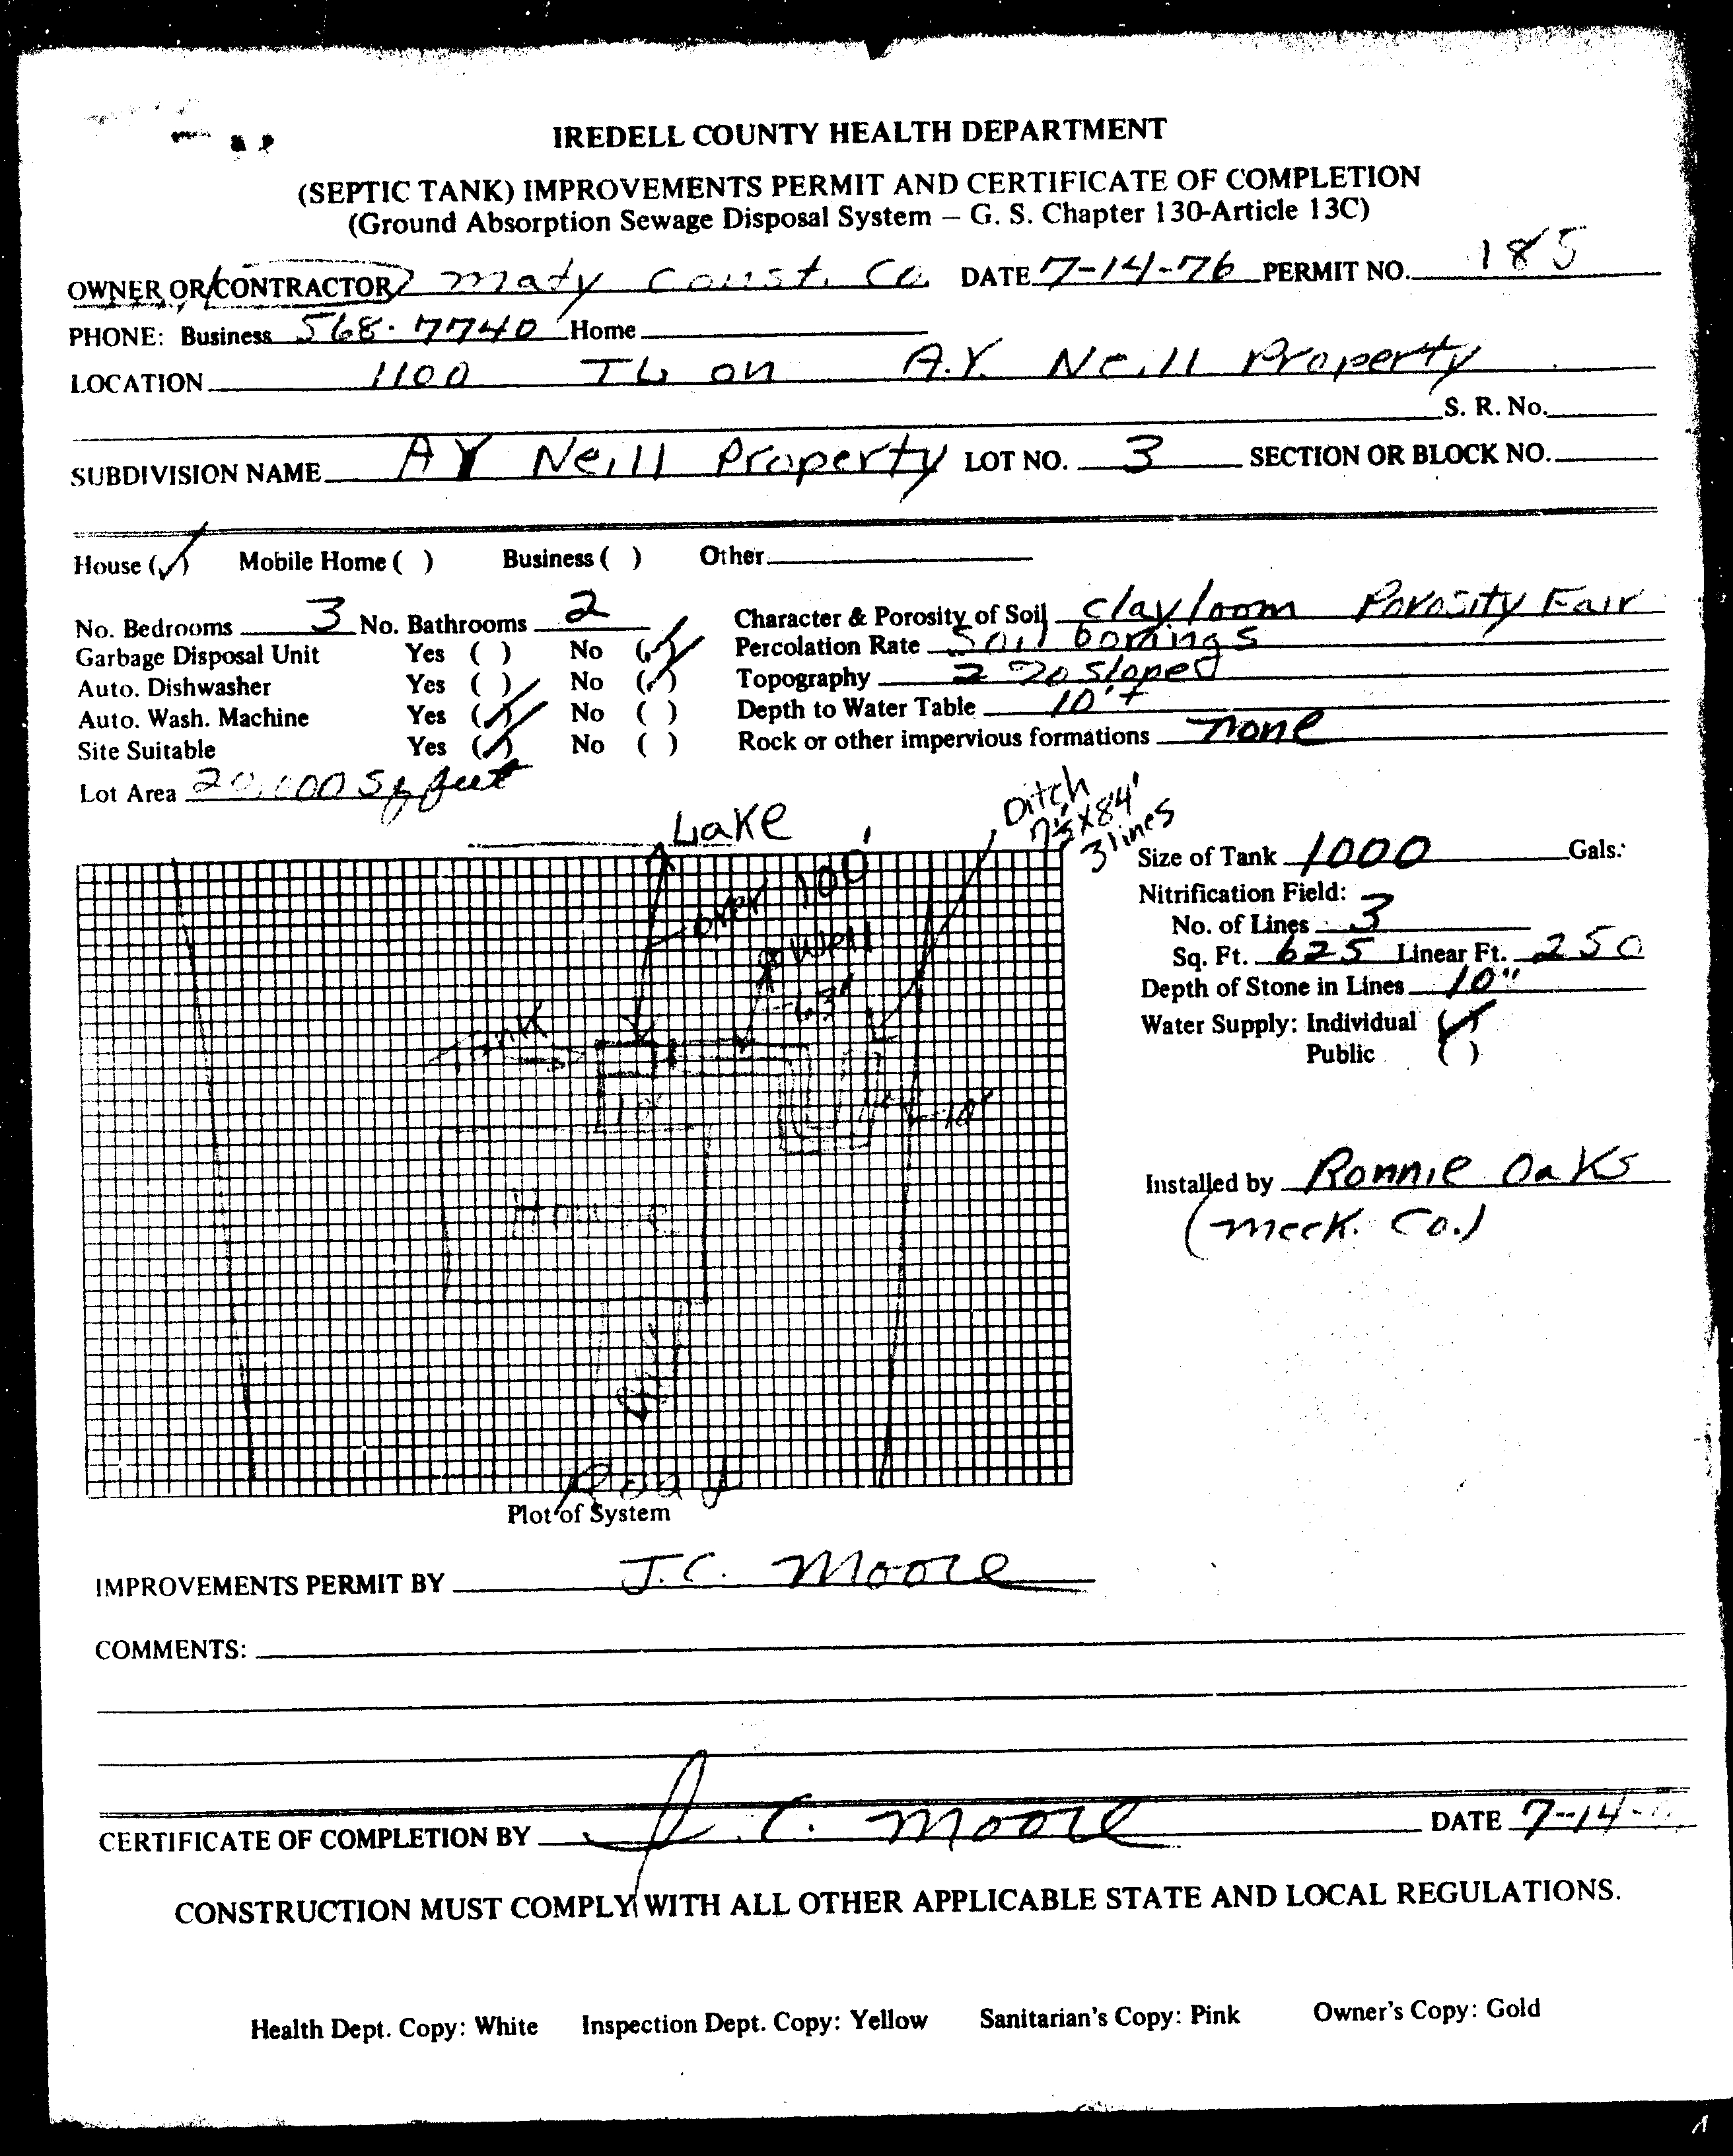 IREDELL COUNTY HEALTH DEPARTMENT
(SEPTIC TANK) IMPROVEMENTS PERMIT AND CERTIFICATE OF COMPLETION
(Ground Absorption Sewage Disposal System – G. S. Chapter 130-Article 13C)
OWNER OR CONTRACTOR Maty Const. Co. DATE 7-14-76 PERMIT NO. 185
PHONE: Business 568-7740 Home
LOCATION 1100 on A.Y. Neill Property
S. R. No.
SUBDIVISION NAME AY Neill Property LOT NO. 3 SECTION OR BLOCK NO.
House (✓) Mobile Home ( ) Business ( ) Other
No. Bedrooms 3 No. Bathrooms 2 Character & Porosity of Soil clay loom Porosity Fair
Garbage Disposal Unit Yes ( ) No (✓) Percolation Rate Soil borings
Auto. Dishwasher Yes ( ) No (✓) Topography 2 % sloped
Auto. Wash. Machine Yes (✓) No ( ) Depth to Water Table 10'+
Site Suitable Yes (✓) No ( ) Rock or other impervious formations none
Lot Area 20,000 Sq feet
Lake
Ditch
84'
3 lines
Size of Tank 1000 Gals.
over 100'
Nitrification Field:
No. of Lines 3
Well
Sq. Ft. 625 Linear Ft. 250
Depth of Stone in Lines 10"
Tank
Water Supply: Individual (✓)
Public ( )
10'
10'
House
Installed by Ronnie Oaks
(Meck. Co.)
Road
Plot of System
IMPROVEMENTS PERMIT BY J.C. Moore
COMMENTS:
CERTIFICATE OF COMPLETION BY J. C. Moore DATE 7-14-
CONSTRUCTION MUST COMPLY WITH ALL OTHER APPLICABLE STATE AND LOCAL REGULATIONS.
Health Dept. Copy: White Inspection Dept. Copy: Yellow Sanitarian's Copy: Pink Owner's Copy: Gold